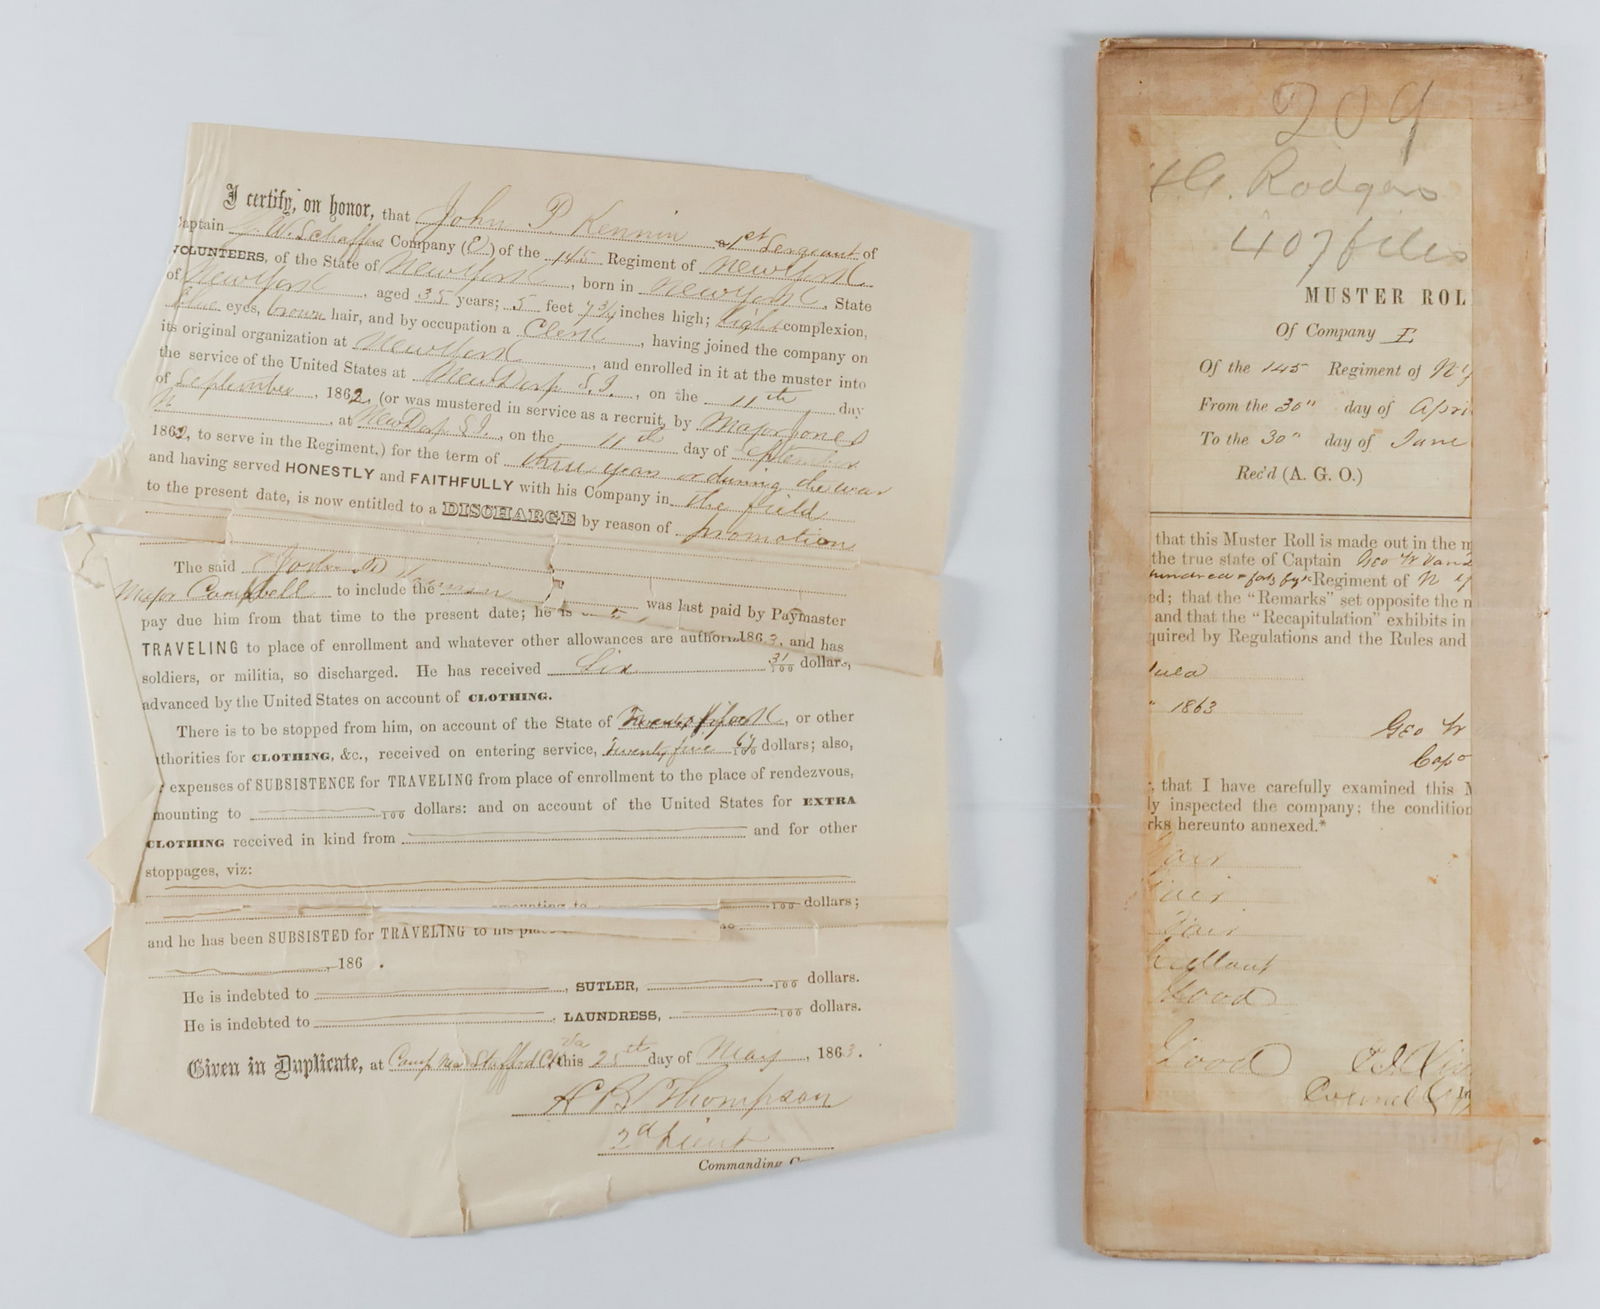 I certify, on honor, that John P Kennin a 1st Sergeant of
Captain G. W. Schaffer Company (E) of the 145 Regiment of New York
VOLUNTEERS, of the State of New York, born in New York, State
of New York, aged 35 years; 5 feet 7 3/4 inches high; light complexion,
blue eyes, brown hair, and by occupation a Clerk, having joined the company on
its original organization at New York, and enrolled in it at the muster into
the service of the United States at New Dorp S.I., on the 11th day
of September, 1862, (or was mustered in service as a recruit, by Major Jones
at New Dorp S.I., on the 11th day of September
1862, to serve in the Regiment,) for the term of three years or during the war
and having served HONESTLY and FAITHFULLY with his Company in the field
to the present date, is now entitled to a DISCHARGE by reason of promotion
The said John
Major Campbell to include the was last paid by Paymaster
pay due him from that time to the present date; he is 1863, and has
TRAVELING to place of enrollment and whatever other allowances are author
soldiers, or militia, so discharged. He has received Six 31/100 dollars,
advanced by the United States on account of CLOTHING.
There is to be stopped from him, on account of the State of New York, or other
uthorities for CLOTHING, &c., received on entering service, Twenty five 67/100 dollars; also,
expenses of SUBSISTENCE for TRAVELING from place of enrollment to the place of rendezvous,
mounting to 100 dollars: and on account of the United States for EXTRA
CLOTHING received in kind from and for other
stoppages, viz:
amounting to 100 dollars;
and he has been SUBSISTED for TRAVELING to his place
, 186 .
He is indebted to , SUTLER, 100 dollars.
He is indebted to , LAUNDRESS, 100 dollars.
Given in Duplicate, at Camp Near Stafford C.H. Va this 25th day of May, 1863.
A B Thompson
2d Lieut
Commanding C
209
H.C. Rodgers
407 files
MUSTER ROL
Of Company E
Of the 145 Regiment of N Y
From the 30" day of Apri
To the 30" day of June
Rec'd (A. G. O.)
that this Muster Roll is made out in the m
the true state of Captain Geo W
hundred & forty fifth Regiment of N Y
ed; that the "Remarks" set opposite the n
and that the "Recapitulation" exhibits in
quired by Regulations and the Rules and
" 1863
Geo W
Cap
that I have carefully examined this M
ly inspected the company; the condition
rks hereunto annexed.*
Fair
Fair
Fair
Good
Good
Colonel